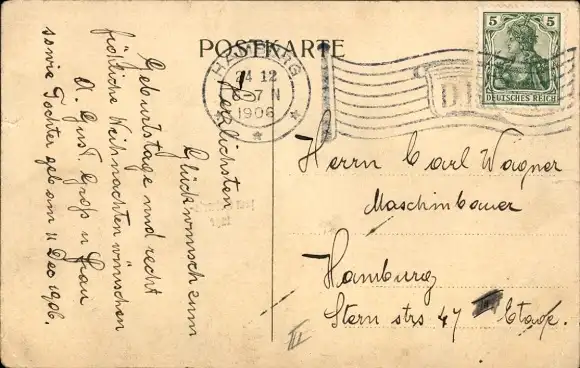 POSTKARTE
HAMBURG
24 12
6-7 N
1906
D.R.
5 5
DEUTSCHES REICH
Herzlichsten
Glückwunsch zum
Geburtstage und recht
fröhliche Weihnachten wünschen
A. Gust. Groß u Frau
sowie Tochter geb am 11 Dec 1906.
Herrn Carl Wagner
Maschinbauer
Hamburg
Stern strs 47 Etage.
III